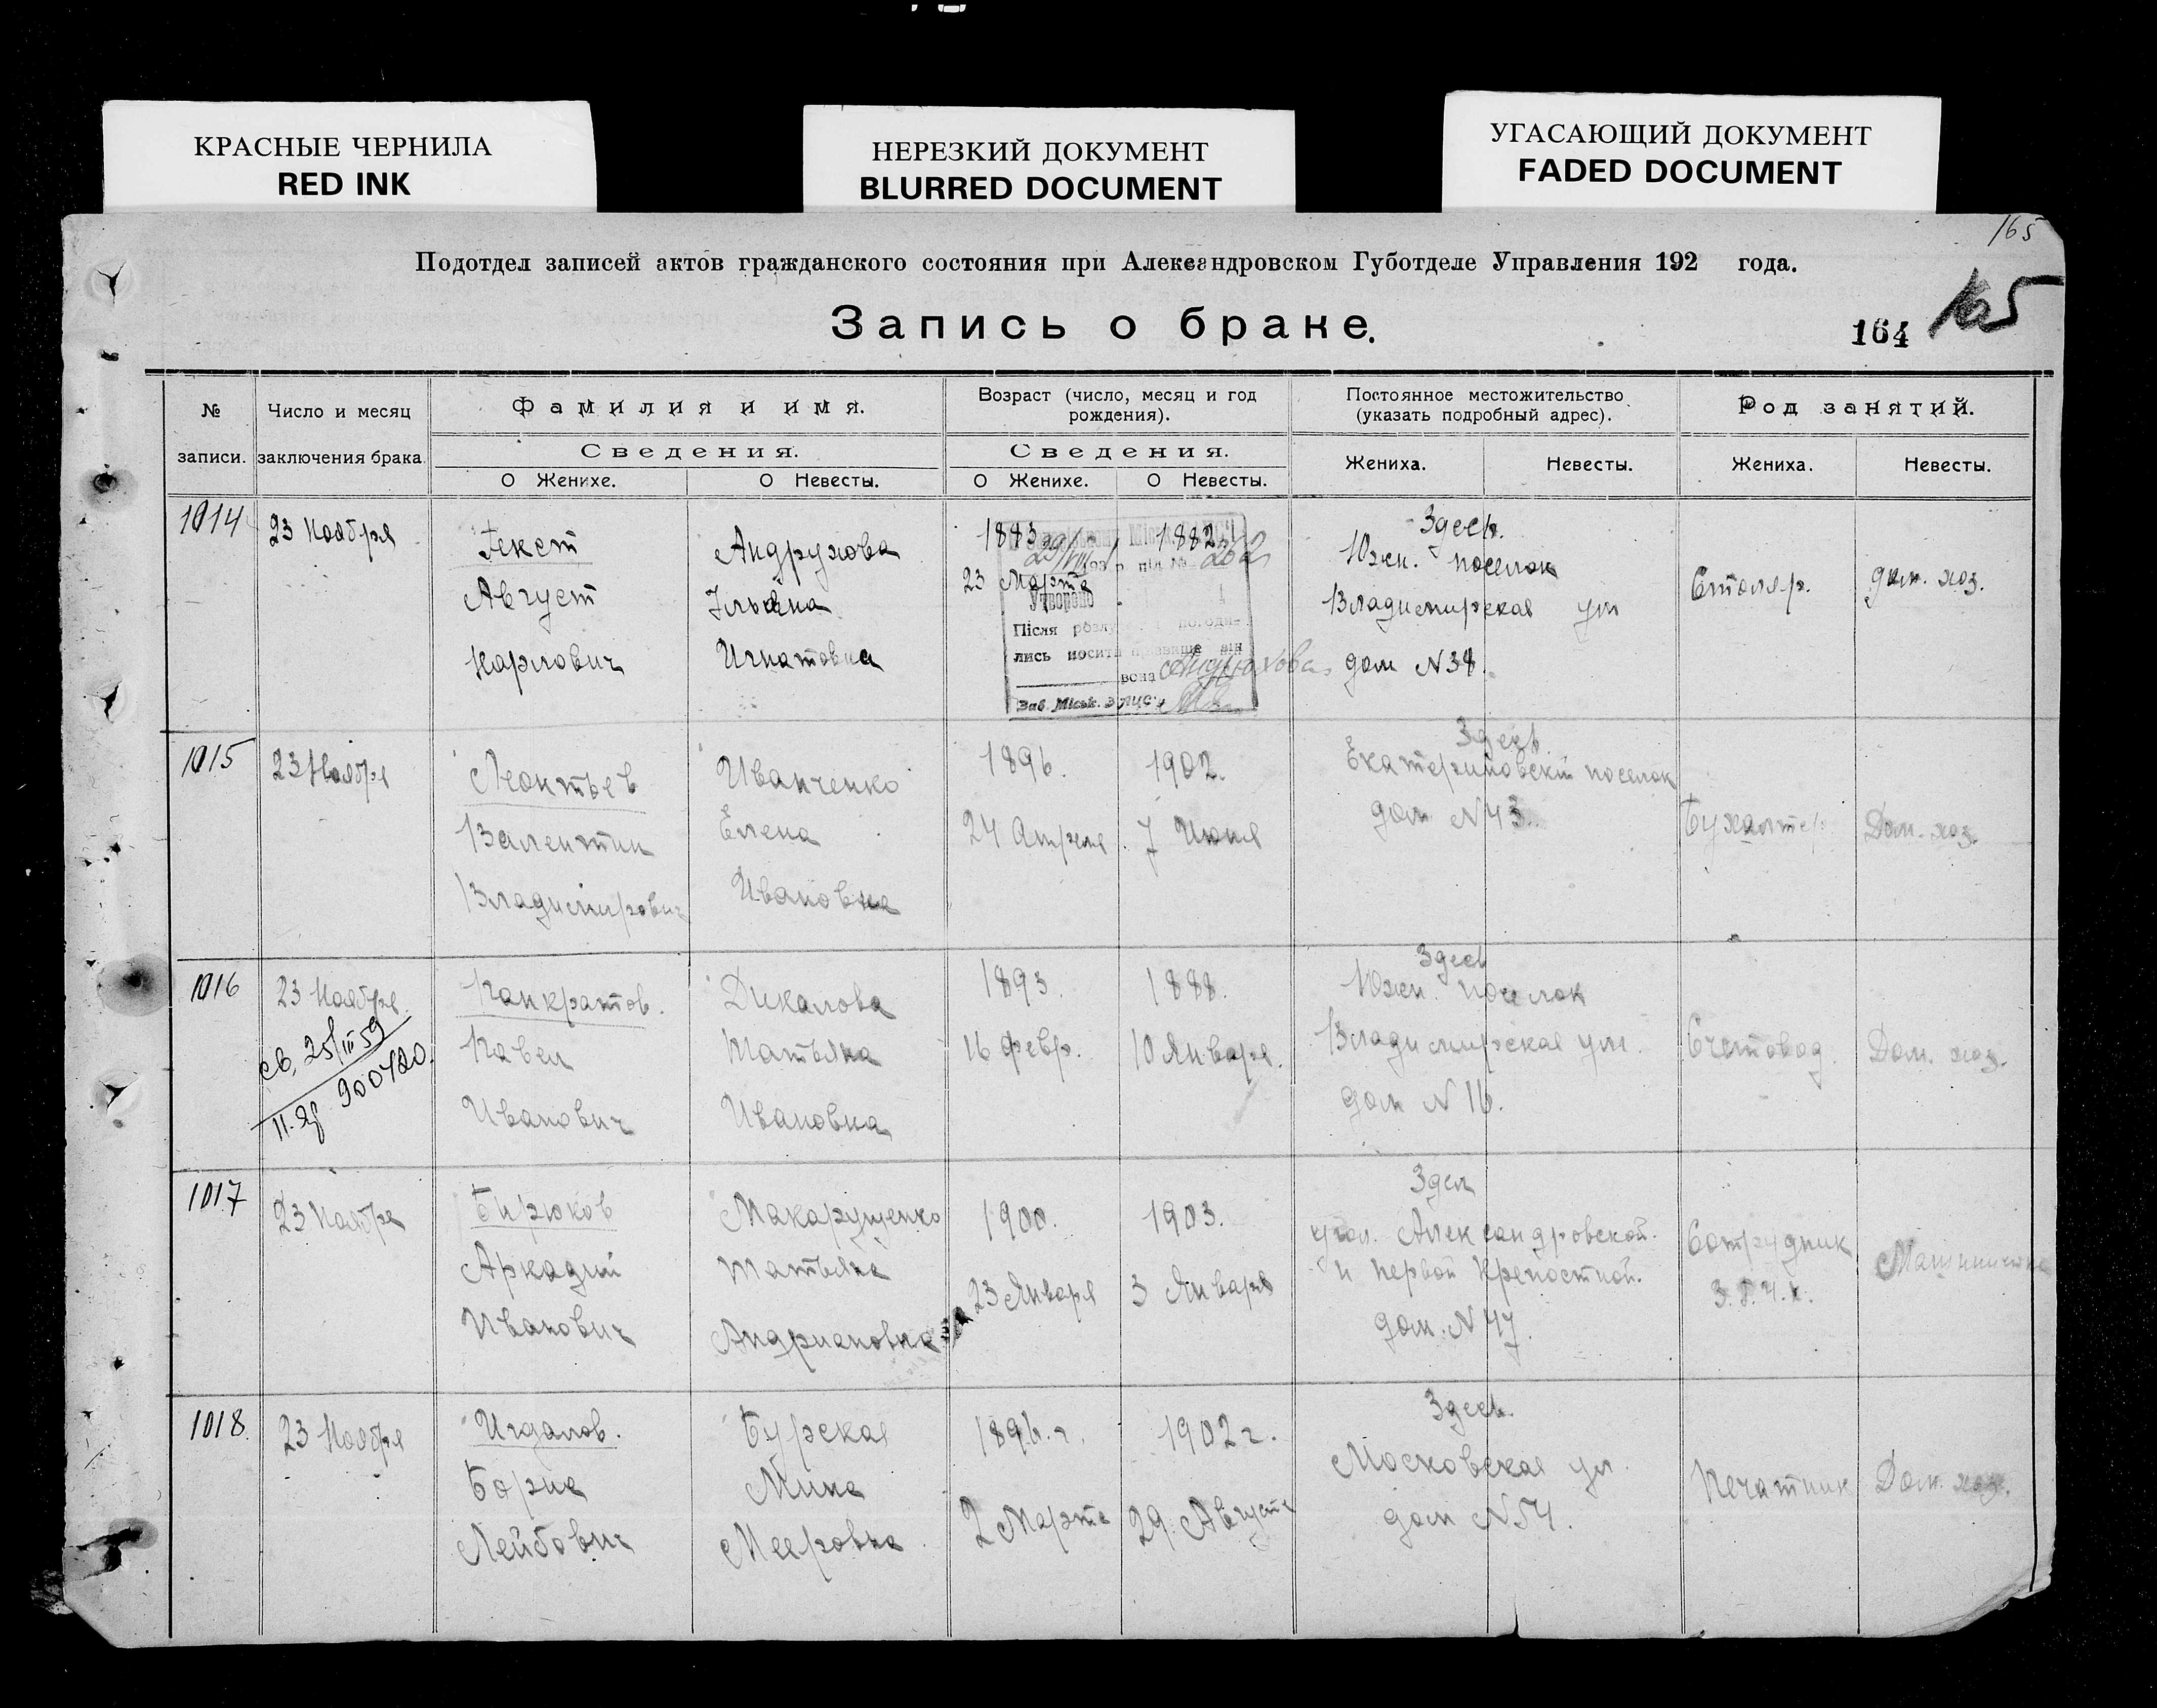 КРАСНЫЕ ЧЕРНИЛА
RED INK
НЕРЕЗКИЙ ДОКУМЕНТ
BLURRED DOCUMENT
УГАСАЮЩИЙ ДОКУМЕНТ
FADED DOCUMENT
165
Подотдел записей актов гражданского состояния при Александровском Губотделе Управления 192 года.
Запись о браке.
164 165
№ записи.
Число и месяц заключения брака.
Фамилия и имя.
Сведения.
О Женихе. О Невесты.
Возраст (число, месяц и год рождения).
Сведения.
О Женихе. О Невесты.
Постоянное местожительство (указать подробный адрес).
Жениха. Невесты.
Род занятий.
Жениха. Невесты.
1014
23 Ноября
Гекст
Август
Карлович
Андрухова
Ульяна
Игнатовна
1883
23 Марта
1882
29/VIII
Утворено
Після
лись носити прізвище він
вона Андрухова
Зав. Міськ. ЗАГС
Здесь.
Южн. поселок
Владимирская ул
дом N 38.
Столяр.
дом. хоз.
1015
23 Ноября
Леонтьев
Валентин
Владимирович
Иванченко
Елена
Ивановна
1896.
24 Апреля
1902.
7 Июня
Здесь
Екатериновский поселок
дом N 43.
Бухалтер
Дом. хоз.
1016
23 Ноября.
св. 25/III 59
900420.
Панкратов.
Павел
Иванович
Дикалова
Татьяна
Ивановна
1893.
16 февр.
1888.
10 Января.
Здесь
Южн. поселок
Владимирская ул.
дом N 16.
Счетовод.
Дом. хоз.
1017
23 Ноября
Бирюков
Аркадий
Иванович
Макарущенко
Татьяна
Андриановна
1900.
23 Января
1903.
3 Января
Здесь
угол. Александровской.
и первой Крепостной.
дом. N 47.
Сотрудник
Машинистка
1018.
23 Ноября
Игдалов.
Борис
Лейбович
Бурская
Мина
Мееровна
1896. г.
2 Марта
1902 г.
29. Августа
Здесь.
Московская ул.
дом N 54.
Печатник
Дом. хоз.